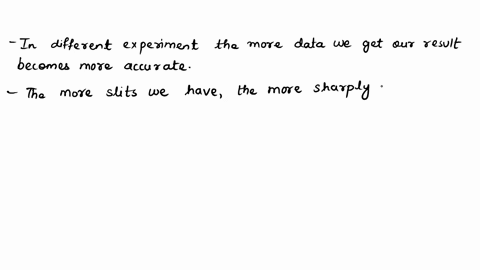 - In different experiment the more data we get our result
becomes more accurate.
- The more slits we have, the more sharply .